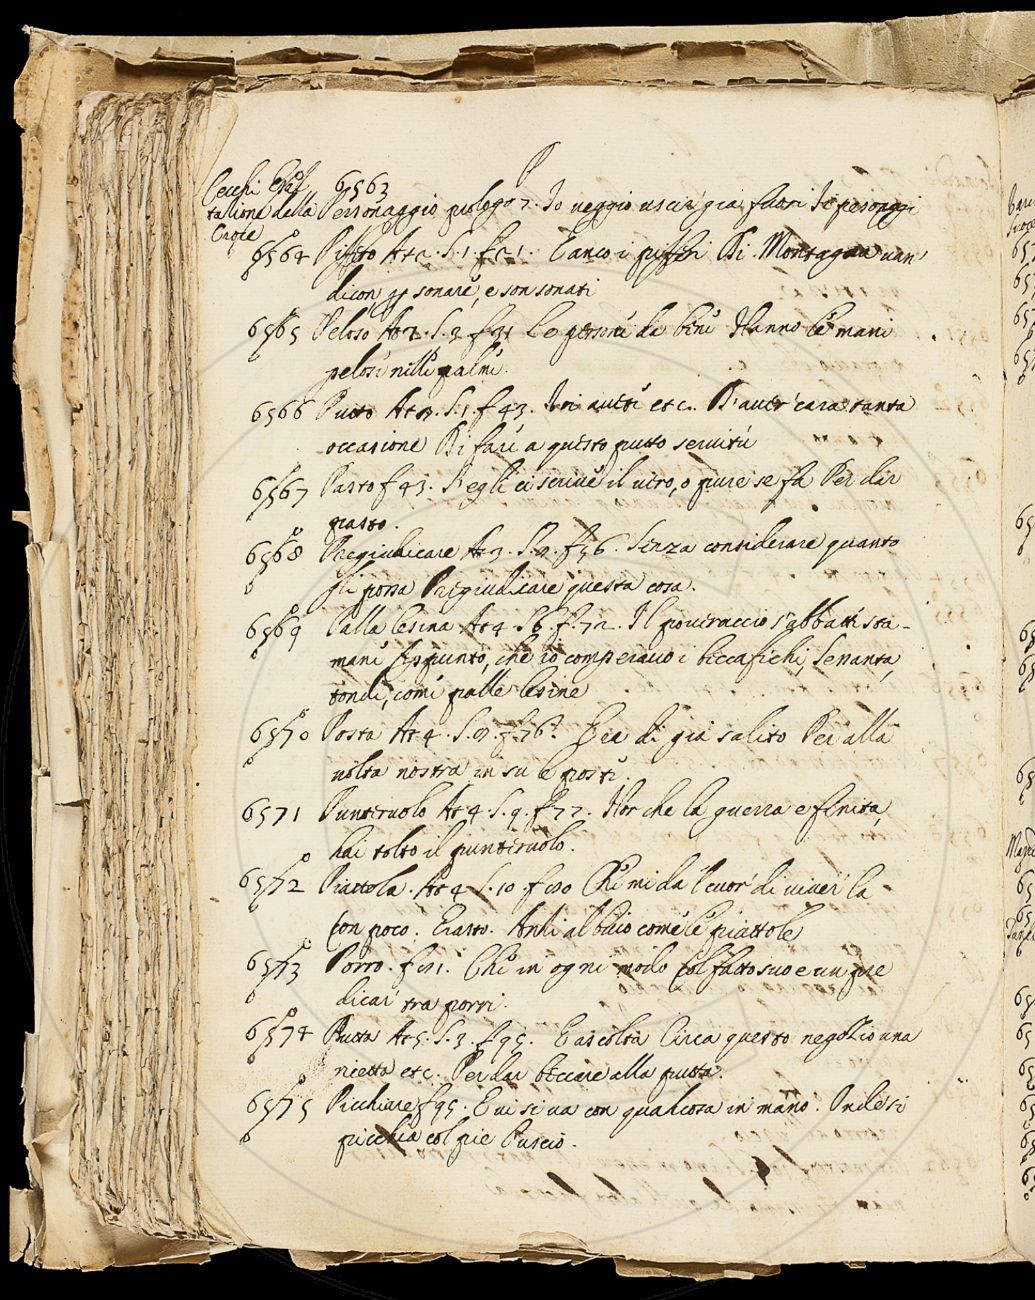 P
Cecchi Esal
6563
tazione della Personaggio prologo 7. Io veggio uscir già fuori I personaggi
Croce
6564 Piffero At 2. S. 1 f 21. E anco i pifferi Di Montagna van
dicon, p sonare, e son sonati
6565 Peloso At 2. S. 2 f 31 Le persone da bene Hanno le mani
pelose nelle palme.
6566 Putto S. 1 f 43. etc. D'aver cara tanta
occasione Di fare a questo putto servitù
6567 Pasto f 43. Begli ci scrive il vero, o pure se fa Per dar
pasto.
6568 Pregiudicare At 3. S. f 56. Senza considerare quanto
gli possa Pregiudicare questa cosa.
6569 Palla lesina At 4 S 6 f. 72. Il poveraccio s'abbatté sta-
mane Appunto, che io comperavo i beccafichi, Senanta,
tondi, come palle lesine
6570 Posta At 4. S. f 76. Era di già salito Per alla
volta nostra in su le poste.
6571 Punteruolo At 4 S. 9. f 77. Hor che la guerra e finita,
hai tolto il punteruolo.
6572 Piattola. At 4 S. 10. f 80 Chi mi da l cuor di viver la
Con poco. Erasto. Andà al buio come le piattole
6573 Porro. f 81. Che in ogni modo Col fatto suo e un pre
dicar tra porri.
6574 Putta At 5. S. 3. f 95. E ascolta Circa questo negozio una
nietta etc. Per dar beccare alla putta.
6575 Picchiare f 95. E vi si va con qualcosa in mano. Onde si
picchia col pie l'uscio.